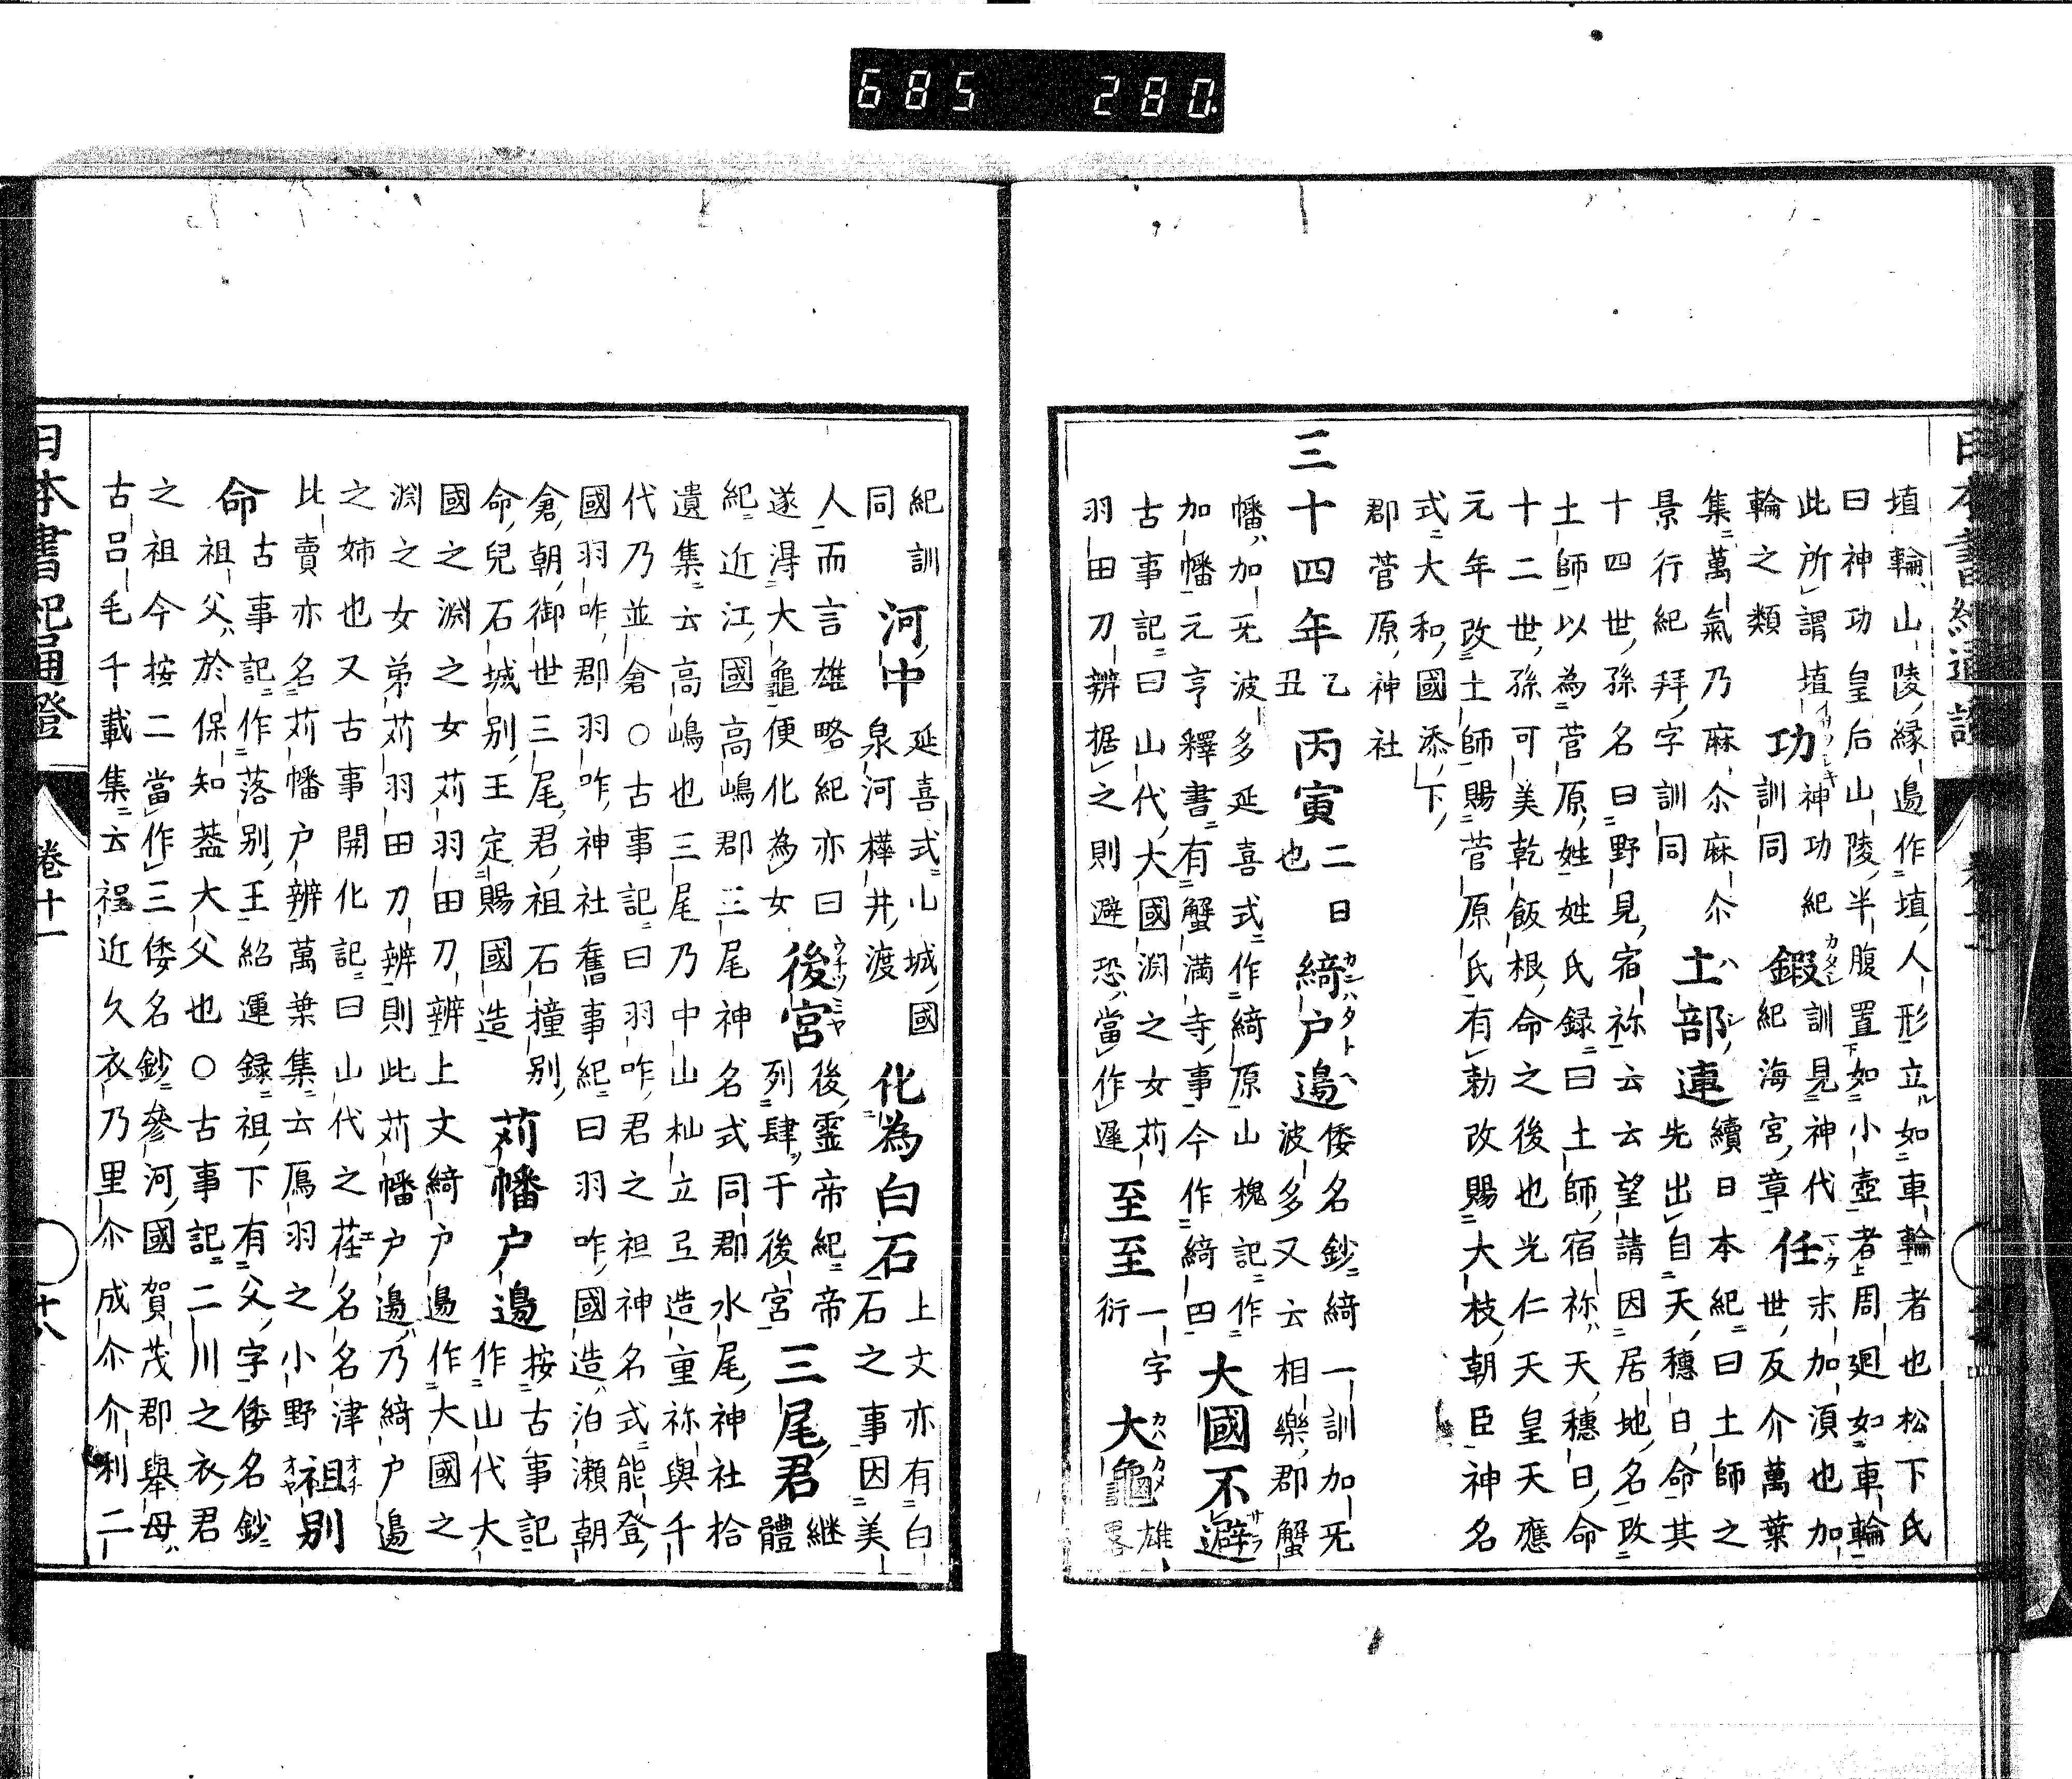 685 280
埴輪山陵縁邊作埴人形立如車輪者也松下氏
曰神功皇后山陵半腹置如小壺者周廻如車輪
此所謂埴
輪之類
功
神功紀
訓同
鍜
訓見神代
紀海宮章
任
末加湏也加
世反介萬葉
集萬氣乃麻尒麻尒
景行紀拜字訓同
土部連
續日本紀曰土師之
先出自天穗日命其
十四世孫名曰野見宿祢云云望請因居地名改
土師以為菅原姓姓氏録曰土師宿祢天穗日命
十二世孫可美乾飯根命之後也光仁天皇天應
元年改土師賜菅原氏有勅改賜大枝朝臣神名
式大和國添下
郡菅原神社
三十四年
乙
丑
丙寅
二日
也
綺戸邊
倭名鈔綺一訓加旡
波多又云相樂郡蟹
幡加旡波多延喜式作綺原山槐記作
加幡元亨釋書有蟹満寺事今作綺田
大國不避
古事記曰山代大國淵之女苅
羽田刀辨据之則避恐當作遲
至至
一字
衍
大龜
雄
畧
紀訓
同
河中
延喜式山城國
泉河樺井渡
化為白石
上文亦有白
石之事因美
人而言雄略紀亦曰
遂淂大龜便化為女
後宮
後靈帝紀帝
列肆于後宮
三尾君
継
體
紀近江國高嶋郡三尾神名式同郡水尾神社拾
遺集云高嶋也三尾乃中山杣立弖造重祢與千
代乃並倉〇古事記曰羽咋君之祖神名式能登
國羽咋郡羽咋神社舊事紀曰羽咋國造泊瀬朝
倉朝御世三尾君祖石撞別
命兒石城別王定賜國造
苅幡戸邊
按古事記
作山代大
國之淵之女苅羽田刀辨上文綺戸邊作大國之
淵之女弟苅羽田刀辨則此苅幡戸邊乃綺戸邊
之姉也又古事開化記曰山代之荏名名津
比賣亦名苅幡戸辨萬葉集云鴈羽之小野
祖別
命
古事記作落別王紹運録祖下有父字倭名鈔
祖父於保知葢大父也〇古事記二川之衣君
之祖今按二當作三倭名鈔參河國賀茂郡擧母
古呂毛千載集云程近久衣乃里尒成尒介利二
日本書紀通證
卷十一
十八